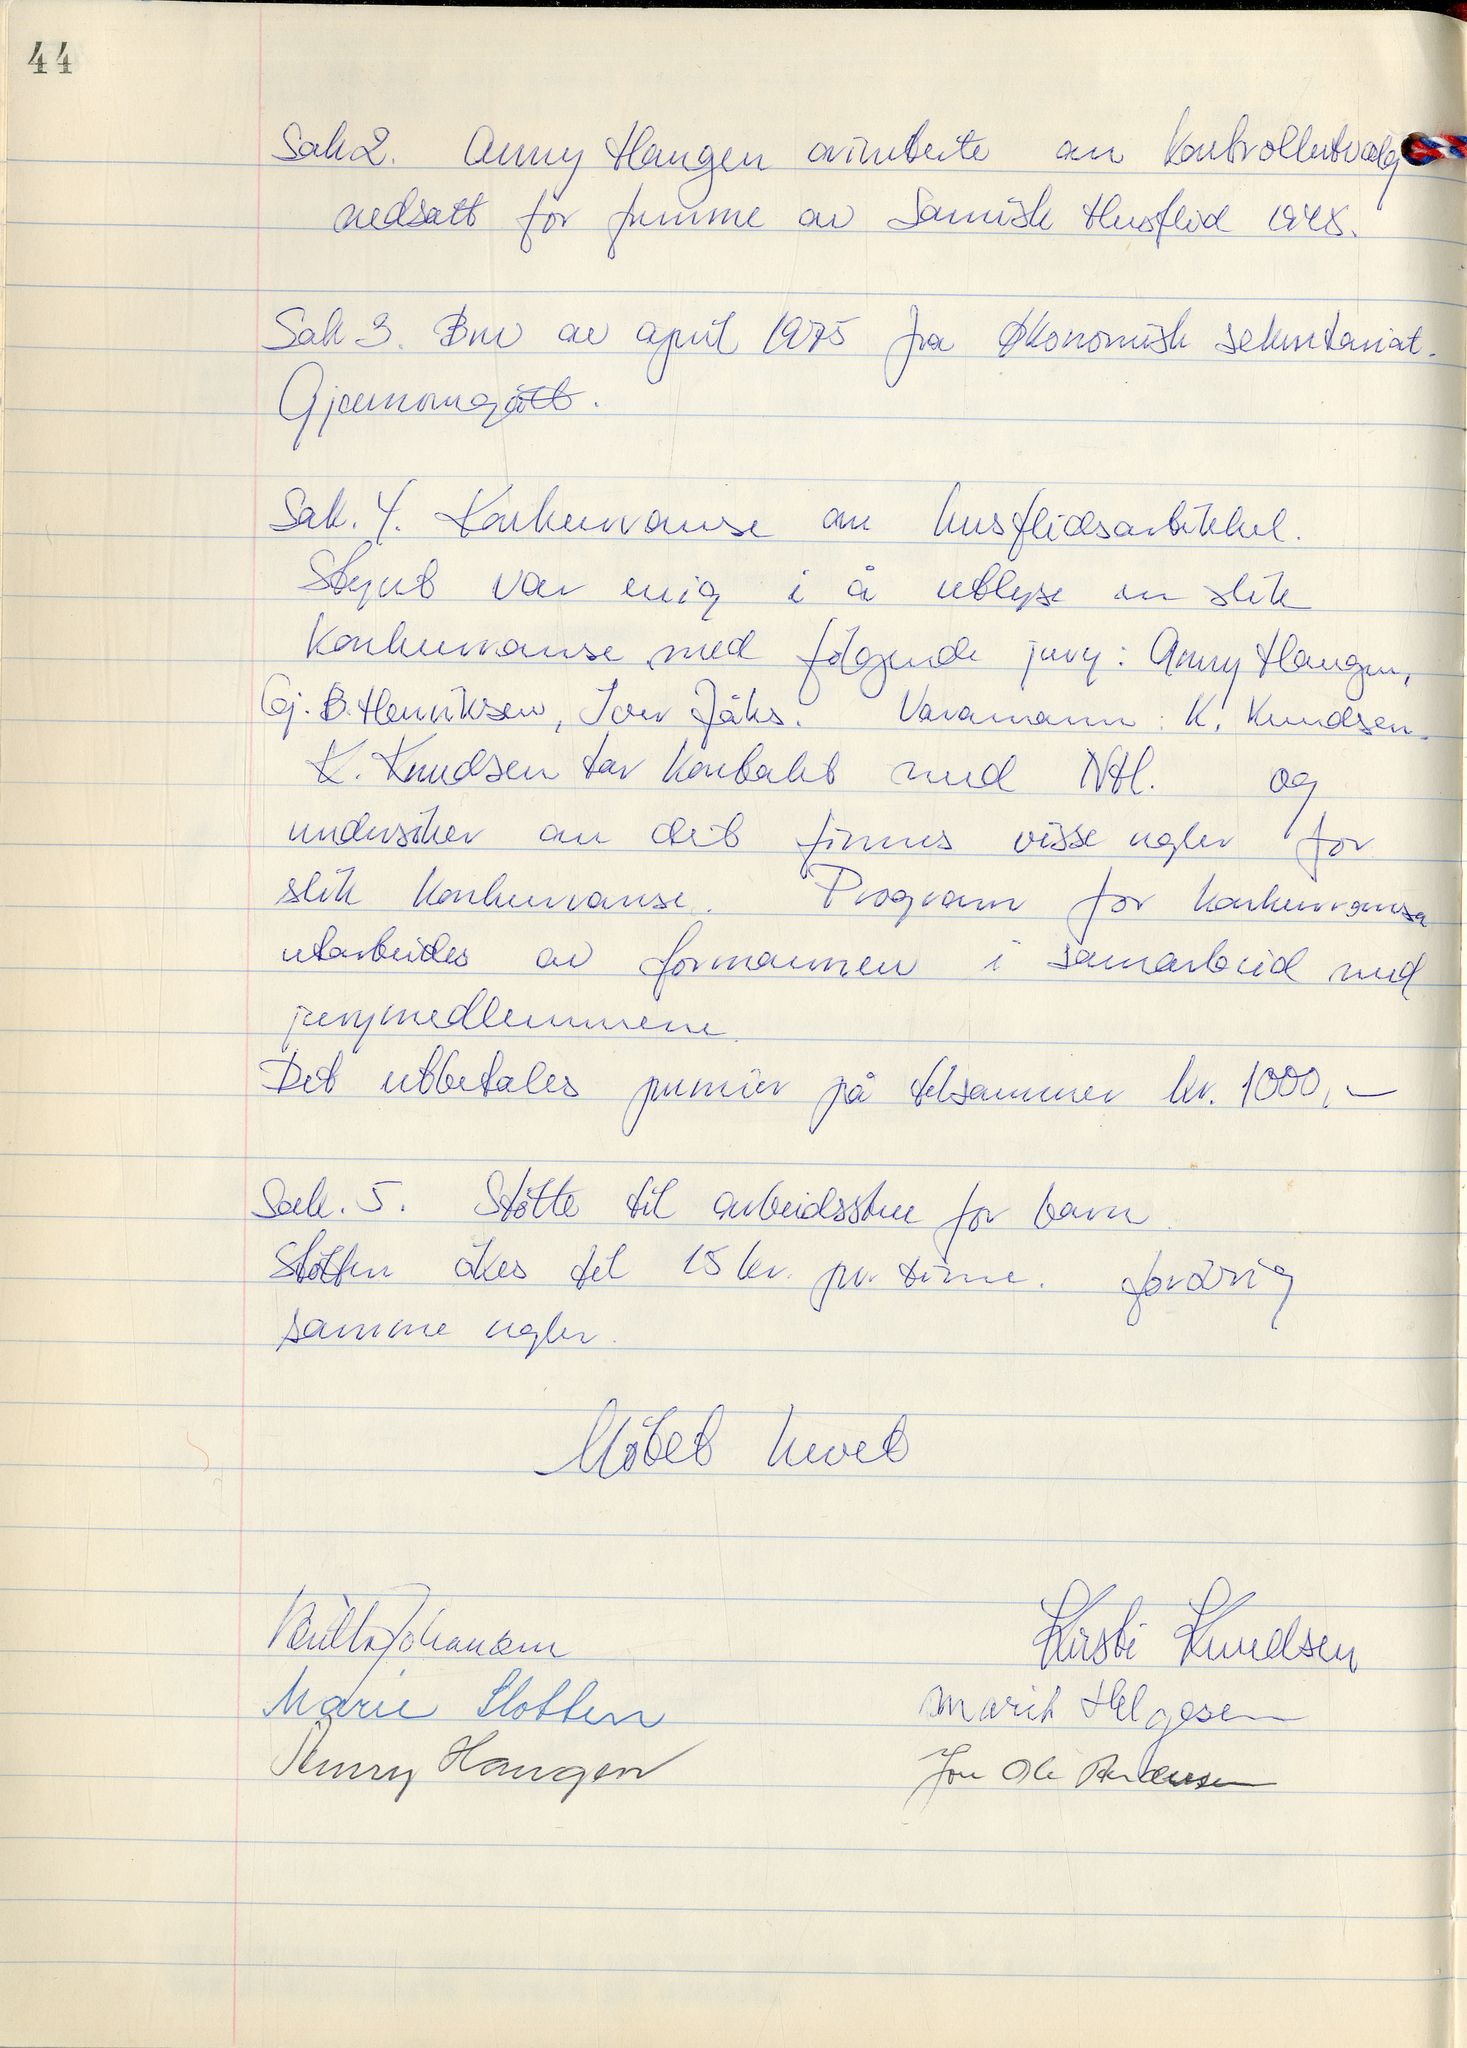 44
Sak 2. Anny Haugen orienterte om Kontrollutvalg
nedsatt for fremme av Samisk Husflid
Sak 3. Brev av april 1975 fra Økonomisk sekretariat.
Gjennomgått.
Sak. 4. Konkurranse om husflidsartikkel.
Styret var enig i å utlyse en slik
Konkurranse med følgende jury: Anny Haugen,
Gj. B. Henriksen, Iver Jåks. Varamann: K. Knudsen.
K. Knudsen tar kontakt med NHL. og
undersöker om det finnes visse regler for
slik konkurranse. Program for konkurransen
utarbeides av formannen i samarbeid med
jurymedlemmene.
Det utbetales premier på tilsammen kr. 1000,-
Sak. 5. Støtte til arbeidsstue for barn.
Støtten økes til 15 kr. pr. time. forøvrig
samme regler.
Møtet hevet
Johansen Kirsti Knudsen
Marie Slotten Marit Helgesen
Anny Haugen Jon Ole Andersen